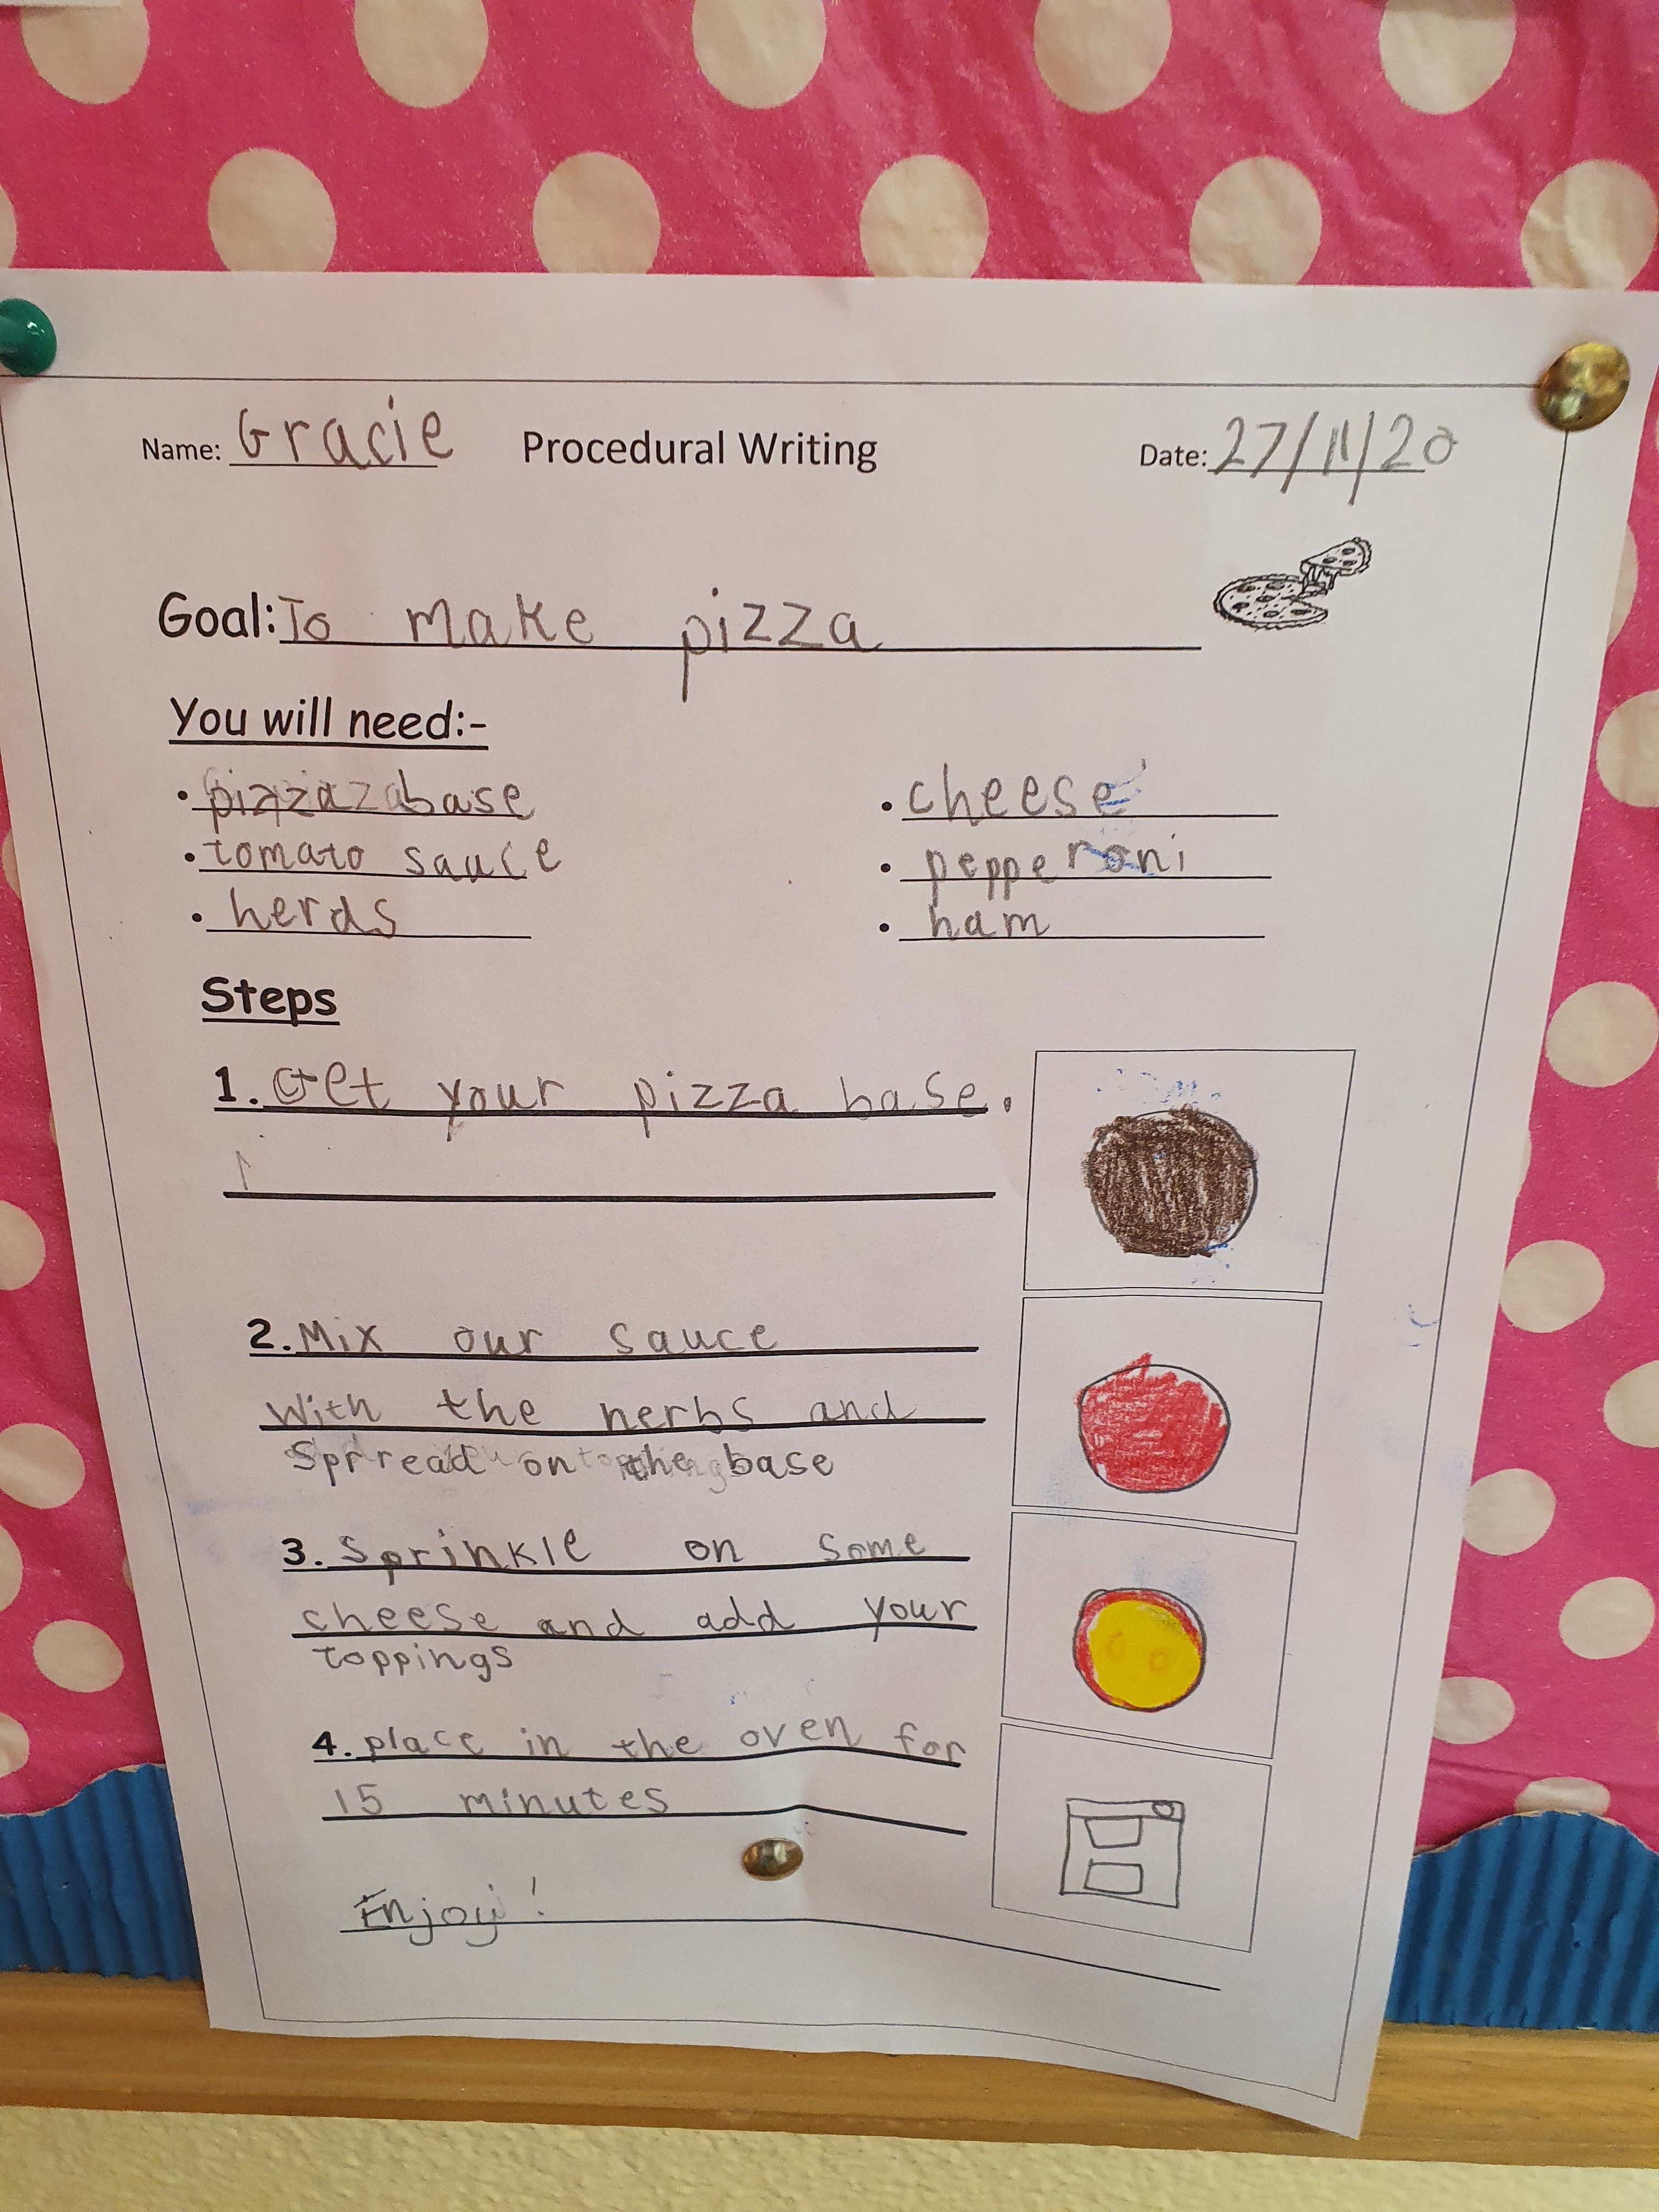 Name: Gracie Procedural Writing Date: 27/11/20
Goal: To make pizza
You will need:-
• pizza base • cheese
• tomato sauce • pepperoni
• herds • ham
Steps
1. Get your pizza base.
2. Mix our sauce
with the herbs and
Sprread on the base
3. Sprinkle on some
cheese and add your
toppings
4. place in the oven for
15 minutes
Enjoy!